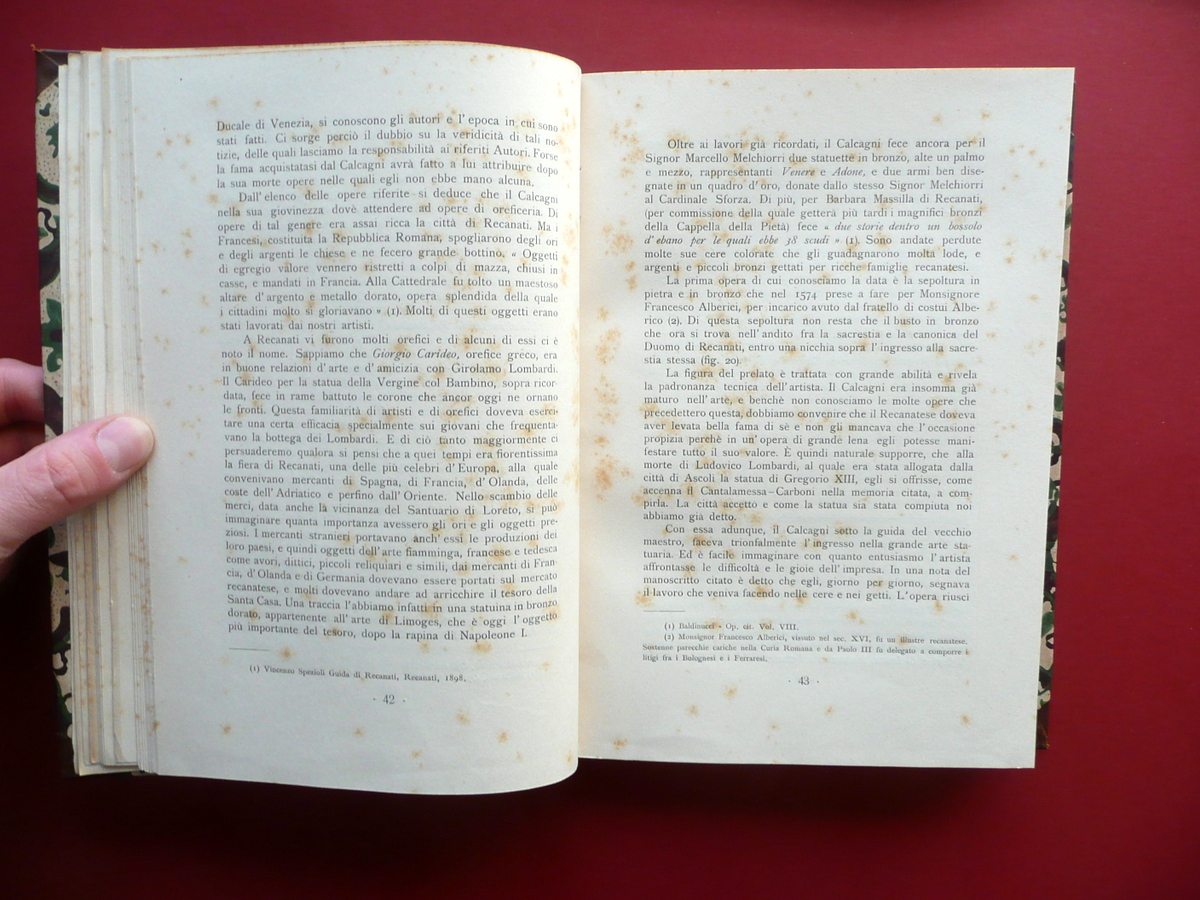 Ducale di Venezia, si conoscono gli autori e l' epoca in cui sono
stati fatti. Ci sorge perciò il dubbio su la veridicità di tali no-
tizie, delle quali lasciamo la responsabilità ai riferiti Autori. Forse
la fama acquistatasi dal Calcagni avrà fatto a lui attribuire dopo
la sua morte opere nelle quali egli non ebbe mano alcuna.
Dall' elenco delle opere riferite si deduce che il Calcagni
nella sua giovinezza dovè attendere ad opere di oreficeria. Di
opere di tal genere era assai ricca la città di Recanati. Ma i
Francesi, costituita la Repubblica Romana, spogliarono degli ori
e degli argenti le chiese e ne fecero grande bottino. « Oggetti
di egregio valore vennero ristretti a colpi di mazza, chiusi in
casse, e mandati in Francia. Alla Cattedrale fu tolto un maestoso
altare d' argento e metallo dorato, opera splendida della quale
i cittadini molto si gloriavano » (1). Molti di questi oggetti erano
stati lavorati dai nostri artisti.
A Recanati vi furono molti orefici e di alcuni di essi ci è
noto il nome. Sappiamo che Giorgio Carideo, orefice greco, era
in buone relazioni d' arte e d' amicizia con Girolamo Lombardi.
Il Carideo per la statua della Vergine col Bambino, sopra ricor-
data, fece in rame battuto le corone che ancor oggi ne ornano
le fronti. Questa familiarità di artisti e di orefici doveva eserci-
tare una certa efficacia specialmente sui giovani che frequenta-
vano la bottega dei Lombardi. E di ciò tanto maggiormente ci
persuaderemo qualora si pensi che a quei tempi era fiorentissima
la fiera di Recanati, una delle più celebri d' Europa, alla quale
convenivano mercanti di Spagna, di Francia, d' Olanda, delle
coste dell' Adriatico e perfino dall' Oriente. Nello scambio delle
merci, data anche la vicinanza del Santuario di Loreto, si può
immaginare quanta importanza avessero gli ori e gli oggetti pre-
ziosi. I mercanti stranieri portavano anch' essi le produzioni dei
loro paesi, e quindi oggetti dell' arte fiamminga, francese e tedesca
come avori, dittici, piccoli reliquiari e simili, dai mercanti di Fran-
cia, d'Olanda e di Germania dovevano essere portati sul mercato
recanatese, e molti dovevano andare ad arricchire il tesoro della
Santa Casa. Una traccia l'abbiamo infatti in una statuina in bronzo
dorato, appartenente all' arte di Limoges, che è oggi l' oggetto
più importante del tesoro, dopo la rapina di Napoleone I.
(1) Vincenzo Spezioli Guida di Recanati, Recanati, 1898.
· 42 ·
Oltre ai lavori già ricordati, il Calcagni fece ancora per il
Signor Marcello Melchiorri due statuette in bronzo, alte un palmo
e mezzo, rappresentanti Venere e Adone, e due armi ben dise-
gnate in un quadro d' oro, donate dallo stesso Signor Melchiorri
al Cardinale Sforza. Di più, per Barbara Massilla di Recanati,
(per commissione della quale getterà più tardi i magnifici bronzi
della Cappella della Pietà) fece « due storie dentro un bossolo
d' ebano per le quali ebbe 38 scudi » (1). Sono andate perdute
molte sue cere colorate che gli guadagnarono molta lode, e
argenti e piccoli bronzi gettati per ricche famiglie recanatesi.
La prima opera di cui conosciamo la data è la sepoltura in
pietra e in bronzo che nel 1574 prese a fare per Monsignore
Francesco Alberici, per incarico avuto dal fratello di costui Albe-
rico (2). Di questa sepoltura non resta che il busto in bronzo
che ora si trova nell' andito fra la sacrestia e la canonica del
Duomo di Recanati, entro una nicchia sopra l' ingresso alla sacre-
stia stessa (fig. 20).
La figura del prelato è trattata con grande abilità e rivela
la padronanza tecnica dell' artista. Il Calcagni era insomma già
maturo nell' arte, e benchè non conosciamo le molte opere che
precedettero questa, dobbiamo convenire che il Recanatese doveva
aver levata bella fama di sè e non gli mancava che l' occasione
propizia perchè in un' opera di grande lena egli potesse mani-
festare tutto il suo valore. È quindi naturale supporre, che alla
morte di Ludovico Lombardi, al quale era stata allogata dalla
città di Ascoli la statua di Gregorio XIII, egli si offrisse, come
accenna il Cantalamessa-Carboni nella memoria citata, a com-
pirla. La città accettò e come la statua sia stata compiuta noi
abbiamo già detto.
Con essa adunque, il Calcagni sotto la guida del vecchio
maestro, faceva trionfalmente l' ingresso nella grande arte sta-
tuaria. Ed è facile immaginare con quanto entusiasmo l' artista
affrontasse le difficoltà e le gioie dell' impresa. In una nota del
manoscritto citato è detto che egli, giorno per giorno, segnava
il lavoro che veniva facendo nelle cere e nei getti. L' opera riuscì
(1) Baldinucci - Op. cit. Vol. VIII.
(2) Monsignor Francesco Alberici, vissuto nel sec. XVI, fu un illustre recanatese.
Sostenne parecchie cariche nella Curia Romana e da Paolo III fu delegato a comporre i
litigi fra i Bolognesi e i Ferraresi.
· 43 ·